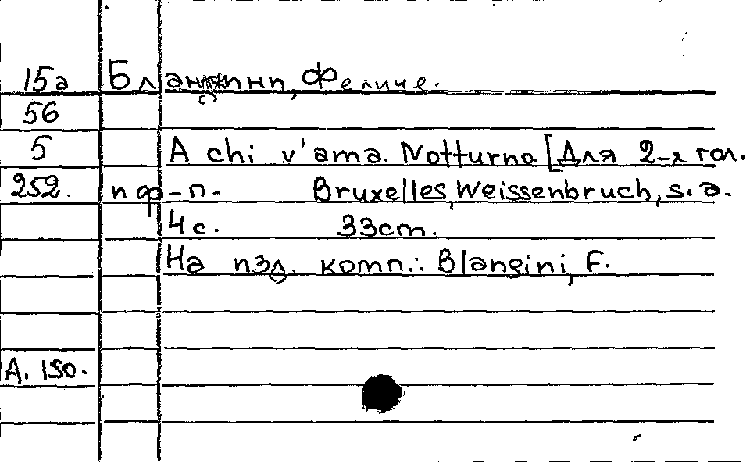 15а Бланжини, Феличе.
56
5 A chi v'ama. Notturno [Для 2-х гол.
252. и ф-п. Bruxelles, Weissenbruch, s.a.
4 с. 33 cm.
На изд. комп.: Blangini, F.
А. 150.